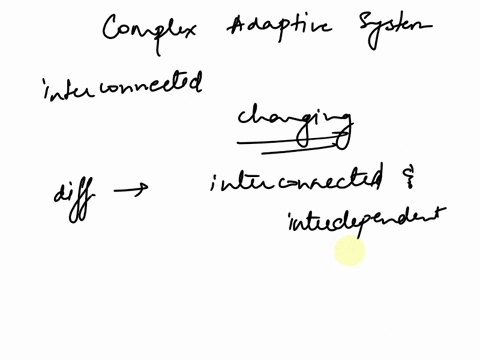 Complex Adaptive System
interconnected
changing
diff → interconnected &
interdependent